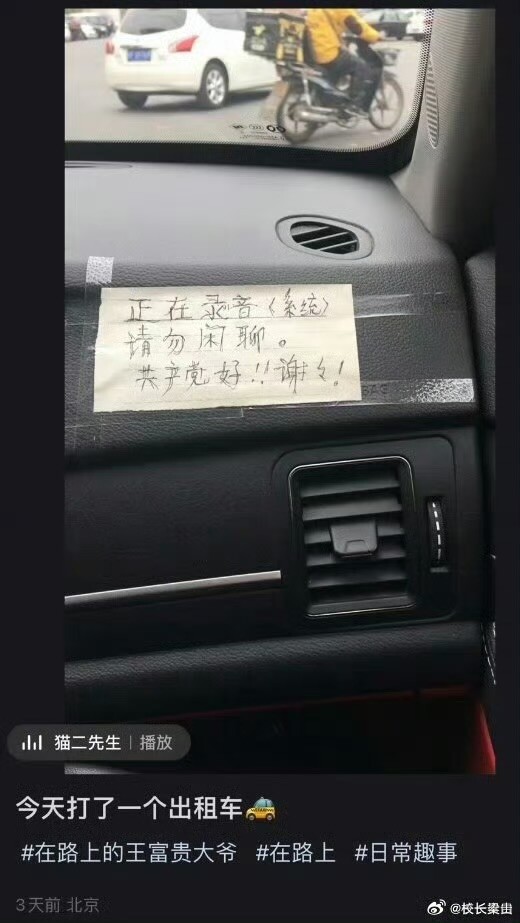 正在录音(系统)
请勿闲聊。
共产党好!!谢々!
猫二先生 | 播放
今天打了一个出租车🚕
#在路上的王富贵大爷 #在路上 #日常趣事
3天前 北京
@校长梁甴